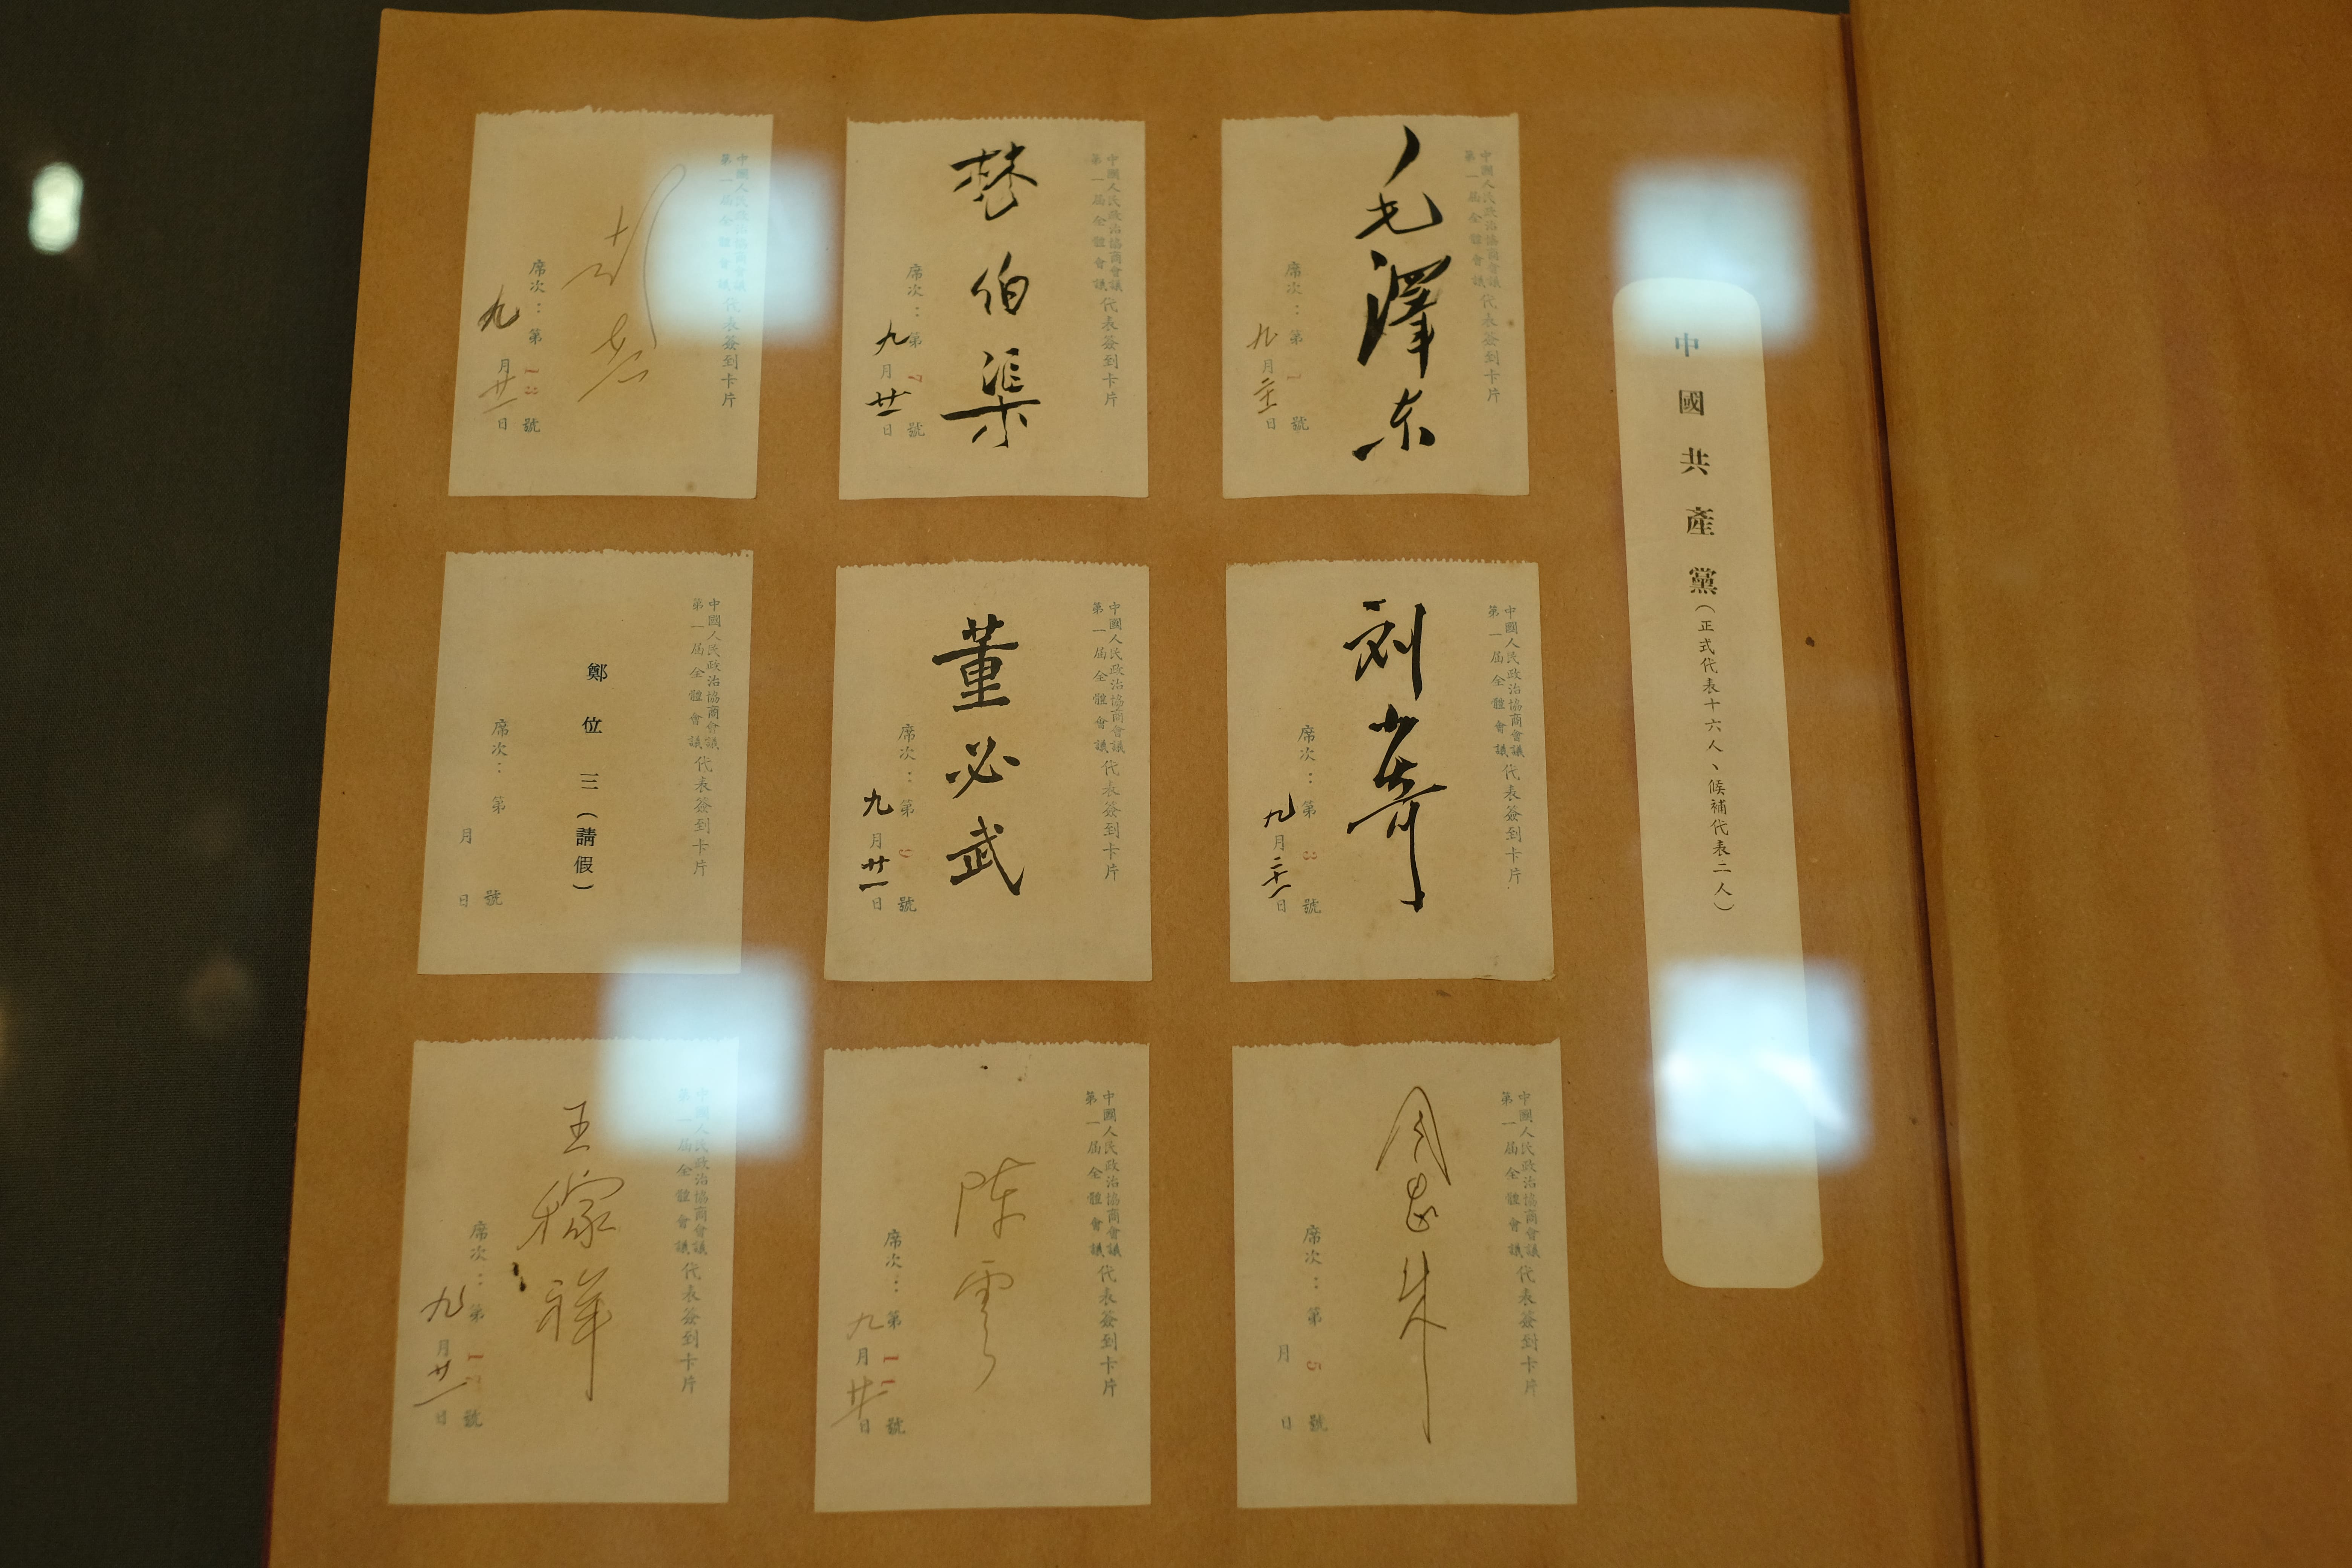 中國共產黨（正式代表十六人、候補代表二人）
中國人民政治協商會議
第一屆全體會議
代表簽到卡片
毛澤东
席次：第1號
九月二十一日
中國人民政治協商會議
第一屆全體會議
代表簽到卡片
刘少奇
席次：第3號
九月二十一日
中國人民政治協商會議
第一屆全體會議
代表簽到卡片
周恩来
席次：第5號
月 日
中國人民政治協商會議
第一屆全體會議
代表簽到卡片
林伯渠
席次：第7號
九月廿一日
中國人民政治協商會議
第一屆全體會議
代表簽到卡片
董必武
席次：第9號
九月廿一日
中國人民政治協商會議
第一屆全體會議
代表簽到卡片
陈雲
席次：第11號
九月廿一日
中國人民政治協商會議
第一屆全體會議
代表簽到卡片
席次：第13號
九月廿一日
中國人民政治協商會議
第一屆全體會議
代表簽到卡片
鄭位三（請假）
席次：第 號
月 日
中國人民政治協商會議
第一屆全體會議
代表簽到卡片
王稼祥
席次：第17號
九月廿一日